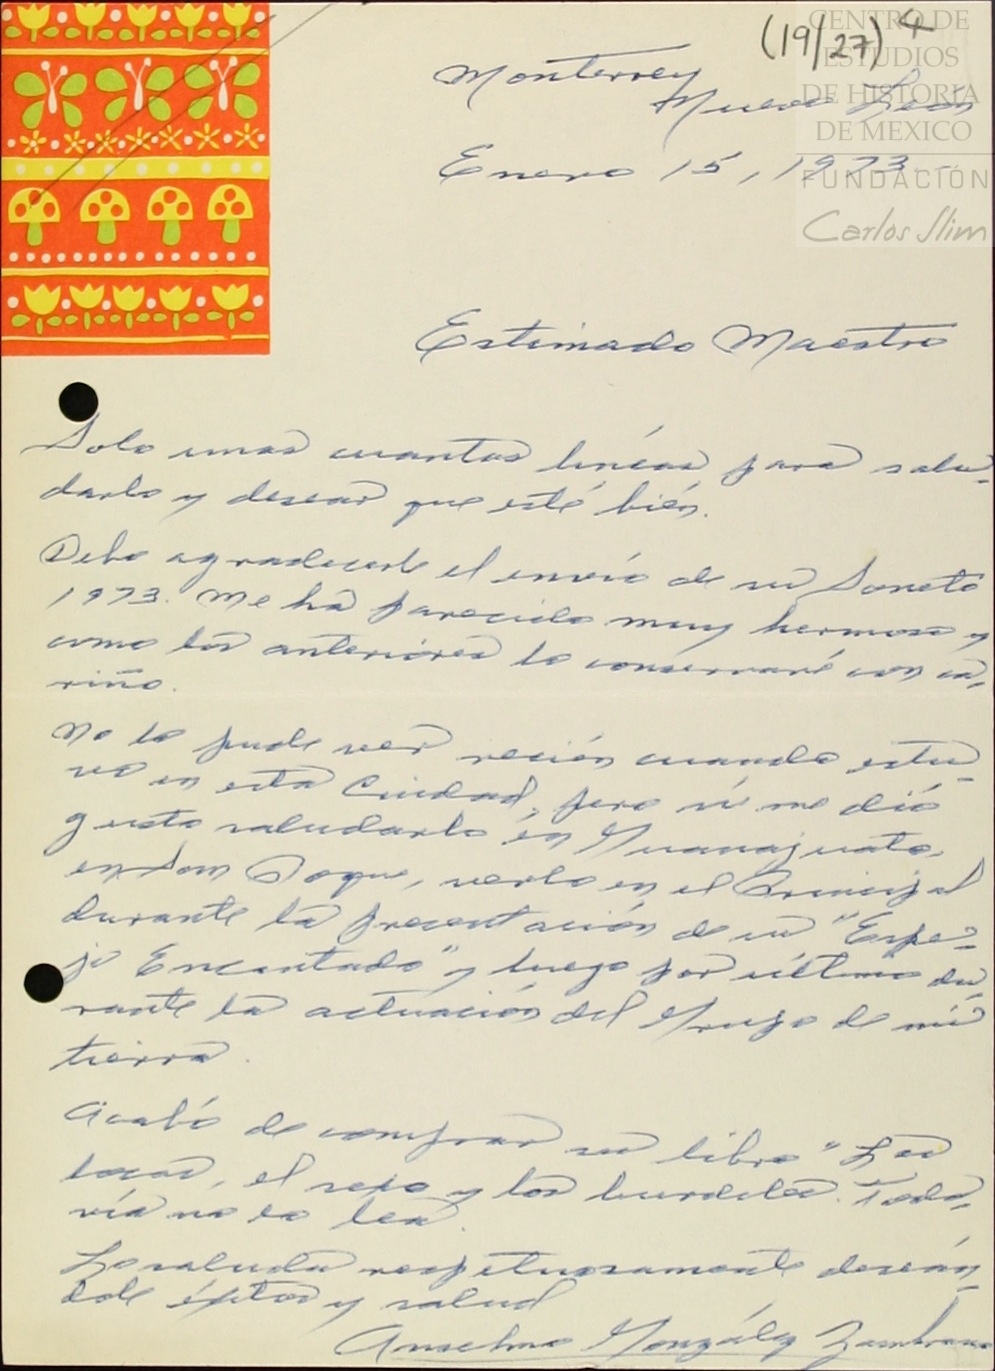 (19/27) 4
CENTRO DE
ESTUDIOS
DE HISTORIA
DE MEXICO
FUNDACIÓN
Carlos Slim
Monterrey
Nuevo León
Enero 15, 1973
Estimado Maestro
Solo unas cuantas líneas para salu-
darlo y desear que esté bién.
Debo agradecerle el envío de su Soneto
1973. Me ha parecido muy hermoso y
como los anteriores lo conservaré con ca-
riño.
No lo pude ver recién cuando estu-
vo en esta Ciudad, pero si me dió
gusto saludarlo en Guanajuato,
en San Roque, verlo en el Principal
durante la presentación de su "Espe-
jo Encantado" y luego por último du-
rante la actuación del Grupo de mi
tierra.
Acabó de comprar su libro "Las
locas, el sexo y los burdeles. Toda-
vía no lo lea.
Lo saluda respetuosamente deseán-
dole éxitos y salud
Anselmo González Zambrano